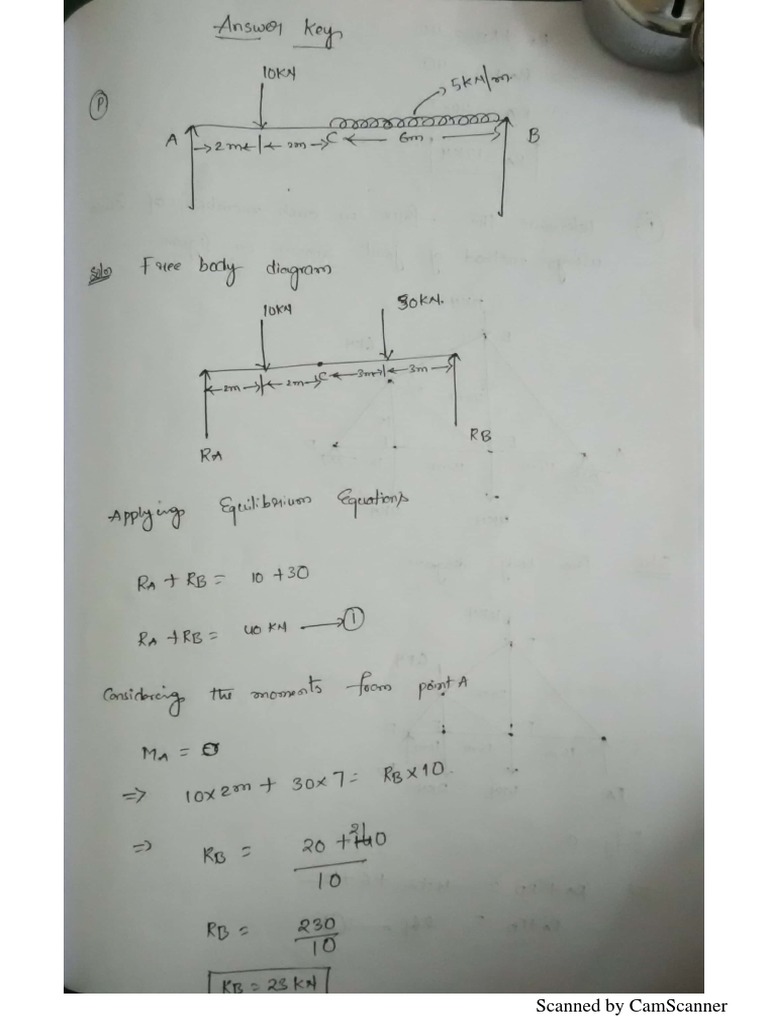 Answer Key
10KN
5KN/m
P
A
2m
2m
C
6m
B
Soln Free body diagram
10KN
30KN.
2m
2m
C
3m
3m
RA
RB
Applying Equilibrium Equations
RA + RB = 10 + 30
RA + RB = 40 KN → 1
Considering the moments from point A
MA = 0
⇒ 10×2m + 30×7 = RB×10.
⇒ RB = 20 + 210
10
RB = 230
10
RB = 23 KN
Scanned by CamScanner